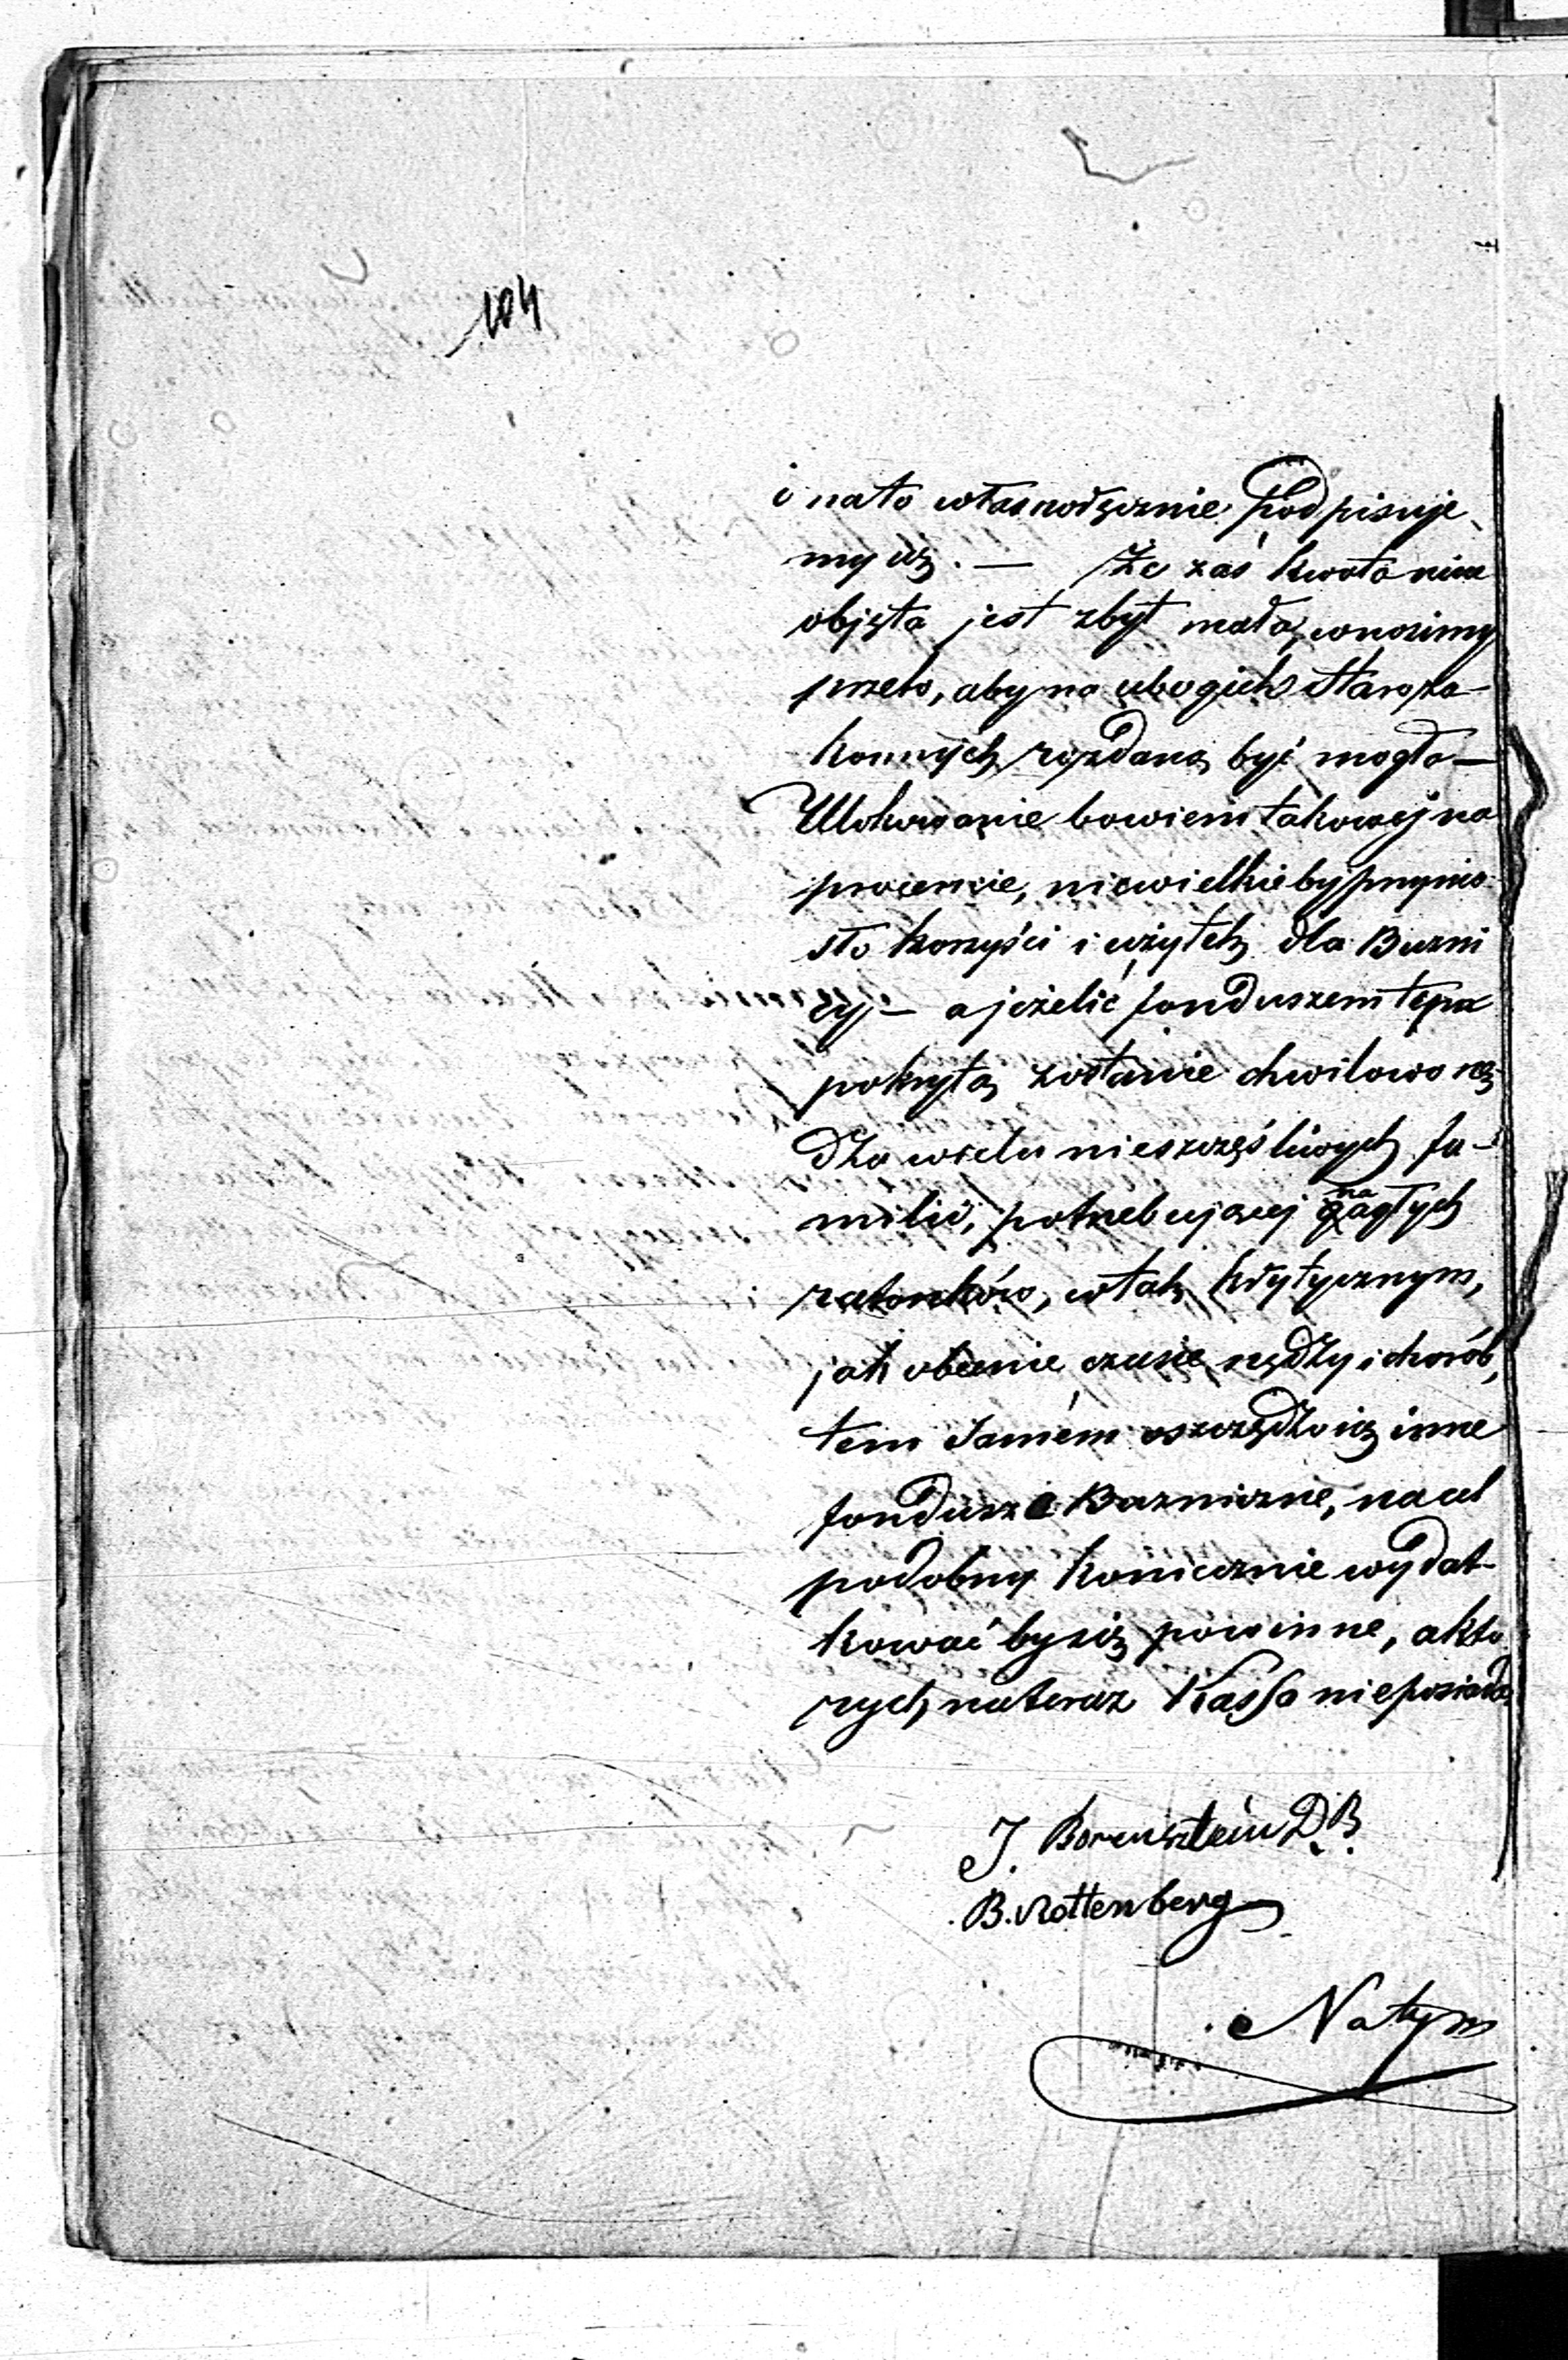 104
i na to własnoręcznie Podpisuje
my się. — Że zaś kwota nim
objęta jest zbyt małą, wnosimy
przeto, aby na ubogich Staroza-
konnych rozdaną być mogła —
Ulokowanie bowiem takowej na
procencie, niewielkie by przynio
sło korzyści i użytek dla Buzni
cy — a jeżelić funduszem tym
pokrytą zostanie chwilowo nę-
dza wielu nieszczęśliwych fa-
milii, potrzebującej nagłych
ratunków, w tak krytycznym,
jak obecnie czasie nędzy i chorób,
tem samém oszczędzo się inne
fundusze Buzniczne, na cel
podobny koniecznie wydat-
kować by się powinne, a któ
rych na teraz Kassa nie posiada
J. Borensztein D.B.
B. Rottenberg
Na tym